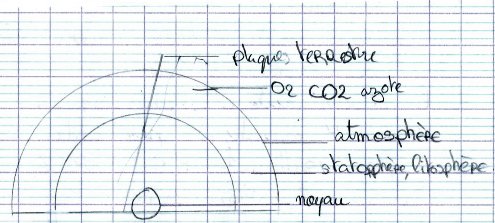 plaques terrestre
O2 CO2 azote
atmosphère
statosphère, litosphère
noyau